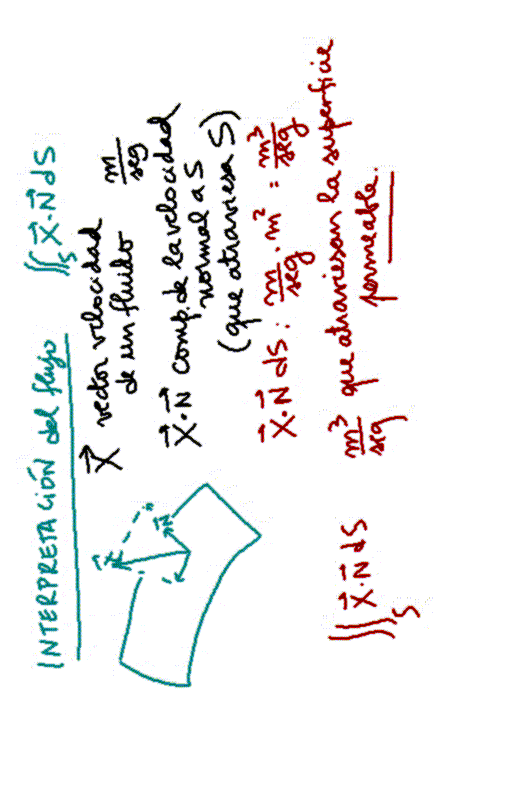 INTERPRETACIÓN del flujo ∬_S X⃗·N⃗ dS
X⃗ vector velocidad m/seg
de un fluido
X⃗·N⃗ comp. de la velocidad
normal a S
(que atraviesa S)
X⃗·N⃗ dS : m/seg · m² = m³/seg
∬_S X⃗·N⃗ dS m³/seg que atraviesan la superficie
permeable.
X⃗
N⃗